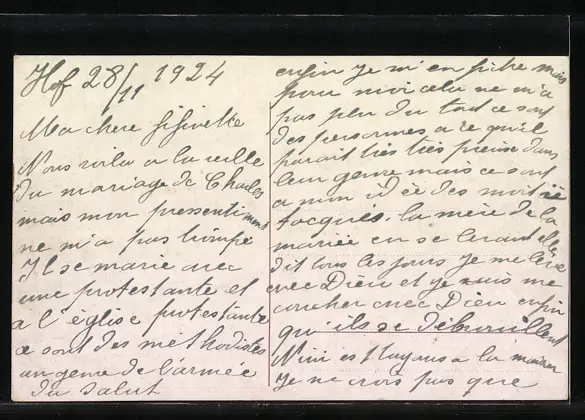 Hof 28/11 1924
Ma chere fifinette
Nous vila a la veille
du mariage de Charles
mais mon pressentiment
ne m'a pas trompé
Il se marie avec
une protestante et
a l'église protestante
ce sont des méthodistes
un genre de l'armée
du salut
enfin je m'en fiche mais
pour moi cela ne m'a
pas plu du tout ce sont
des personnes a ce qu'il
parait très très pieuse dans
leur genre mais ce sont
a mon idée des
la mère de la
mariée en se levant elle
dit tous les jours je me lève
avec Dieu et je me
coucher avec Dieu enfin
qu'ils se débrouillent
Nini est a la maison
Je ne crois pas que